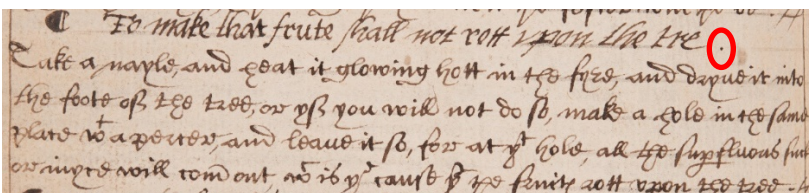 To make that frute shall not rott upon the tre .
Take a nayle, and heat it glowing hott in the fyre, and dryue it into
the foote off the tree, or yff you will not do so, make a hole in the same
place wt a percer, and leaue it so, for at yt hole, all the supfluous
or iuyce will com out wc is ye cause yt ye fruite rott upon the tree